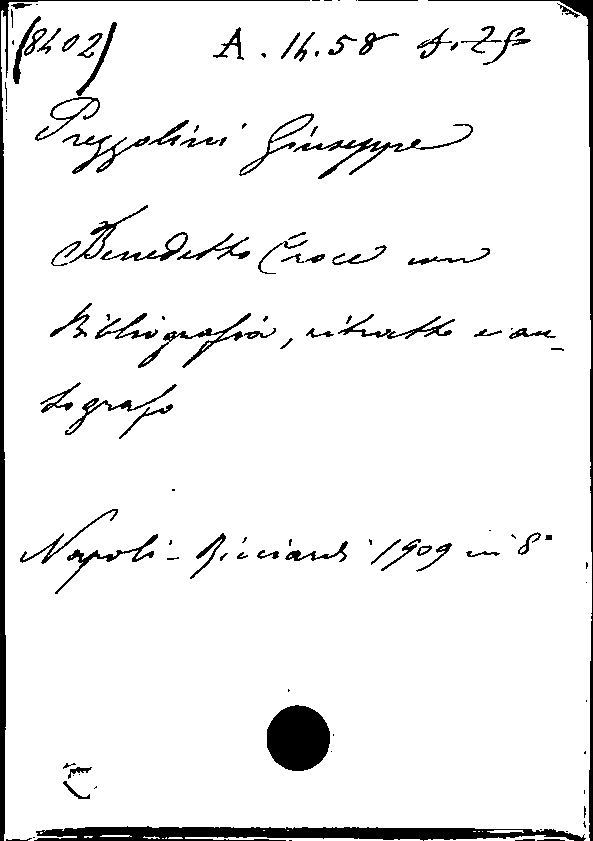 (8402) A. 14. 58
Prezzolini Giuseppe
Benedetto Croce con
Bibliografia, ritratto e au-
tografo
Napoli - Ricciardi 1909 in 8°